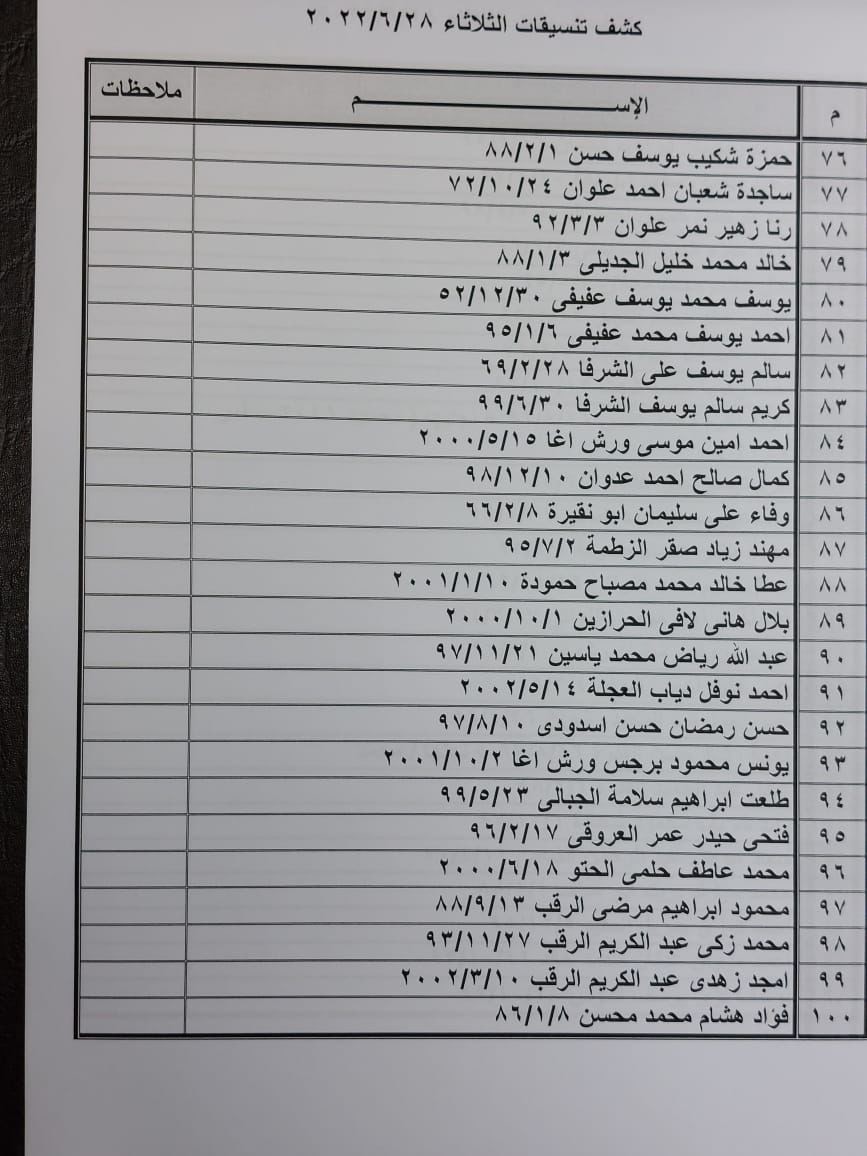 كشف تنسيقات الثلاثاء ٢٠٢٢/٦/٢٨
م الإســـــــــــــــــــم ملاحظات
٧٦ حمزة شكيب يوسف حسن ٨٨/٢/١
٧٧ ساجدة شعبان احمد علوان ٧٢/١٠/٢٤
٧٨ رنا زهير نمر علوان ٩٢/٣/٣
٧٩ خالد محمد خليل الجديلى ٨٨/١/٣
٨٠ يوسف محمد يوسف عفيفى ٥٢/١٢/٣٠
٨١ احمد يوسف محمد عفيفى ٩٥/١/٦
٨٢ سالم يوسف على الشرفا ٦٩/٢/٢٨
٨٣ كريم سالم يوسف الشرفا ٩٩/٦/٣٠
٨٤ احمد امين موسى ورش اغا ٢٠٠٠/٥/١٥
٨٥ كمال صالح احمد عدوان ٩٨/١٢/١٠
٨٦ وفاء على سليمان ابو نقيرة ٦٦/٢/٨
٨٧ مهند زياد صقر الزطمة ٩٥/٧/٢
٨٨ عطا خالد محمد مصباح حمودة ٢٠٠١/١/١٠
٨٩ بلال هانى لافى الحرازين ٢٠٠٠/١٠/١
٩٠ عبد الله رياض محمد ياسين ٩٧/١١/٢١
٩١ احمد نوفل دياب العجلة ٢٠٠٢/٥/١٤
٩٢ حسن رمضان حسن اسدودى ٩٧/٨/١٠
٩٣ يونس محمود برجس ورش اغا ٢٠٠١/١٠/٢
٩٤ طلعت ابراهيم سلامة الجبالى ٩٩/٥/٢٣
٩٥ فتحى حيدر عمر العروقى ٩٦/٢/١٧
٩٦ محمد عاطف حلمى الحتو ٢٠٠٠/٦/١٨
٩٧ محمود ابراهيم مرضى الرقب ٨٨/٩/١٣
٩٨ محمد زكى عبد الكريم الرقب ٩٣/١١/٢٧
٩٩ امجد زهدى عبد الكريم الرقب ٢٠٠٢/٣/١٠
١٠٠ فؤاد هشام محمد محسن ٨٦/١/٨